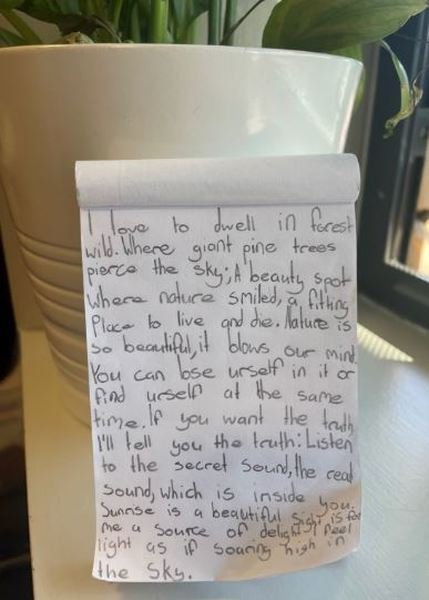 I love to dwell in forest
wild. Where giant pine trees
pierce the sky; A beauty spot
where nature smiled, a fitting
Place to live and die. Nature is
so beautiful, it blows our mind.
You can lose urself in it or
find urself at the same
time. If you want the truth
I'll tell you the truth: Listen
to the secret sound, the real
sound, which is inside you.
Sunrise is a beautiful sight is for
me a source of delight I feel
light as if soaring high in
the sky.